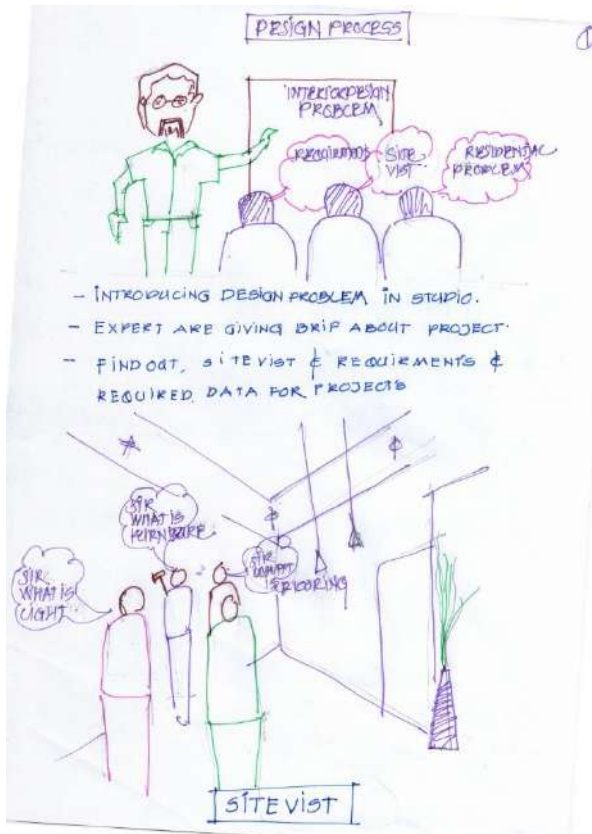 DESIGN PROCESS
1
INTERIORDESIGN
PROBLEM
REQUIRMENTS
SITE
VIST
RESIDENTIAL
PROBLEM
- INTRODUCING DESIGN PROBLEM IN STUDIO.
- EXPERT ARE GIVING BRIF ABOUT PROJECT.
- FIND OUT, SITE VIST & REQUIRMENTS &
REQUIRED DATA FOR PROJECTS
SIR
WHAT IS
FURNITURE
SIR
WHAT IS
LIGHT
SIR
SITE VIST